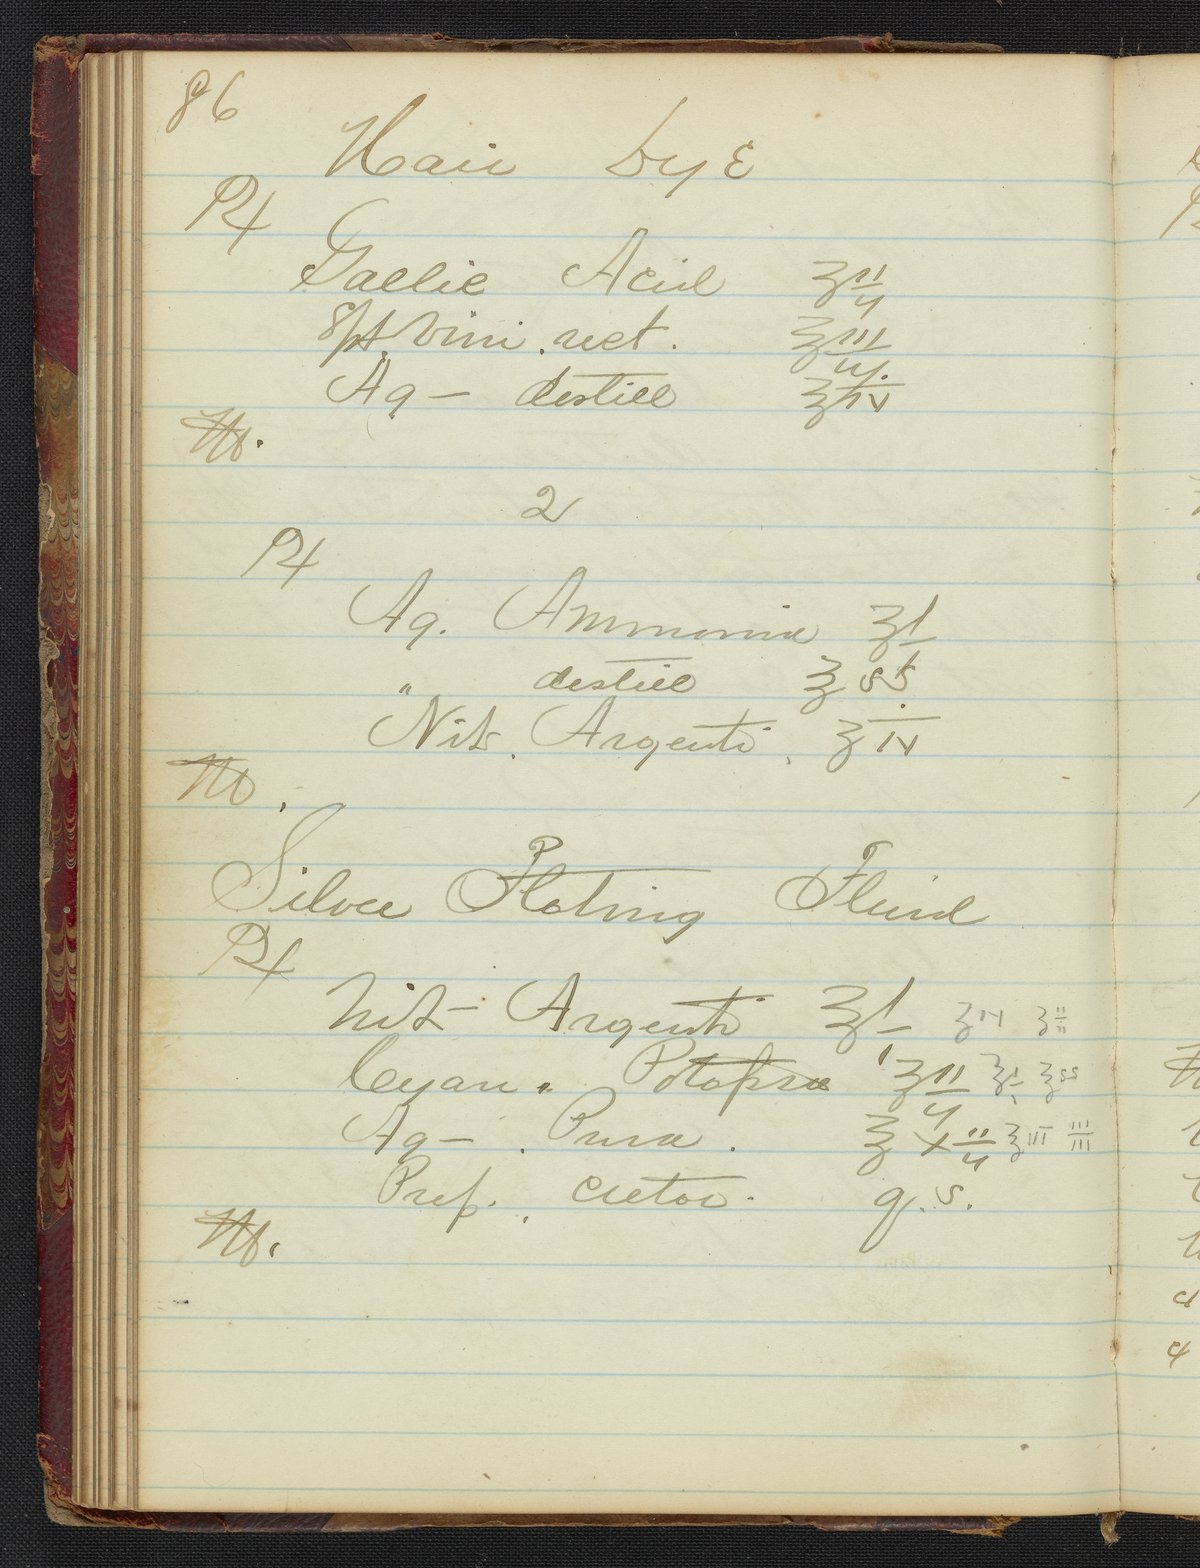 86
Hair Dye
℞
Gallic Acid ʒii
Spt. Vini. rect. ℥iii
Aq — destill ℥iv
M.
2
℞
Aq. Ammonia ℥i
" destill ℥ss
Nit. Argenti ʒiv
M.
Silver Plating Fluid
℞
Nit — Argenti ℥i ʒiv ʒii
Cyan. Potassa ℥ii ℥i ℥ss
Aq — . Pura . ℥xii ℥vi iii
Prep. cretae. q.s.
M.